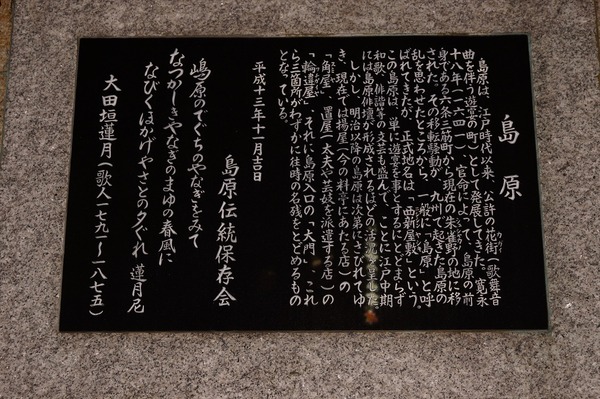 島原
島原は、江戸時代以来、公許の花街（歌舞音
曲を伴う遊宴の町）として発展してきた。寛永
十八年（一六四一）、官命によって、島原の前
身である六条三筋町から現在の朱雀野の地に移
された。その移転騒動が、九州で起きた島原の
乱を思わせたところから、一般に「島原」と呼
ばれてきたが、正式地名は「西新屋敷」という。
この島原は、単に遊宴を事とするにとどまらず
和歌、俳諧等の文芸も盛んで、ことに江戸中期
には島原俳壇が形成されるほどの活況を呈した。
しかし、明治以降の島原は次第にさびれてゆ
き、現在では揚屋（今の料亭にあたる店）の
「角屋」、置屋（太夫や芸妓を派遣する店）の
「輪違屋」、それに島原入口の「大門」、これ
ら三箇所がわずかに往時の名残をとどめるもの
となっている。
平成十三年十一月吉日
島原伝統保存会
嶋原のでぐちのやなぎをみて
なつかしきやなぎのまゆの春風に
なびくほかげやさとの夕ぐれ 蓮月尼
大田垣蓮月（歌人一七九一～一八七五）